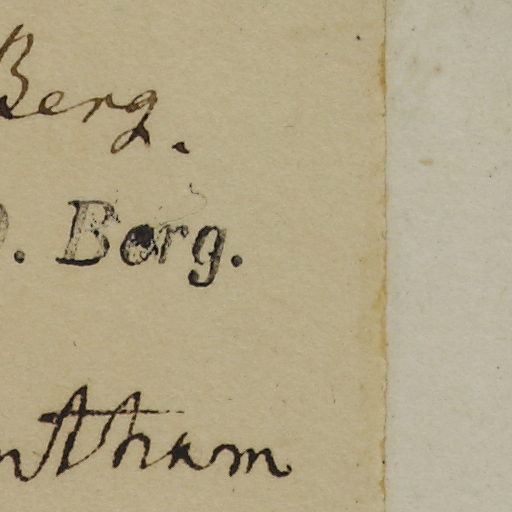 Berg.
O. Berg.
ntham